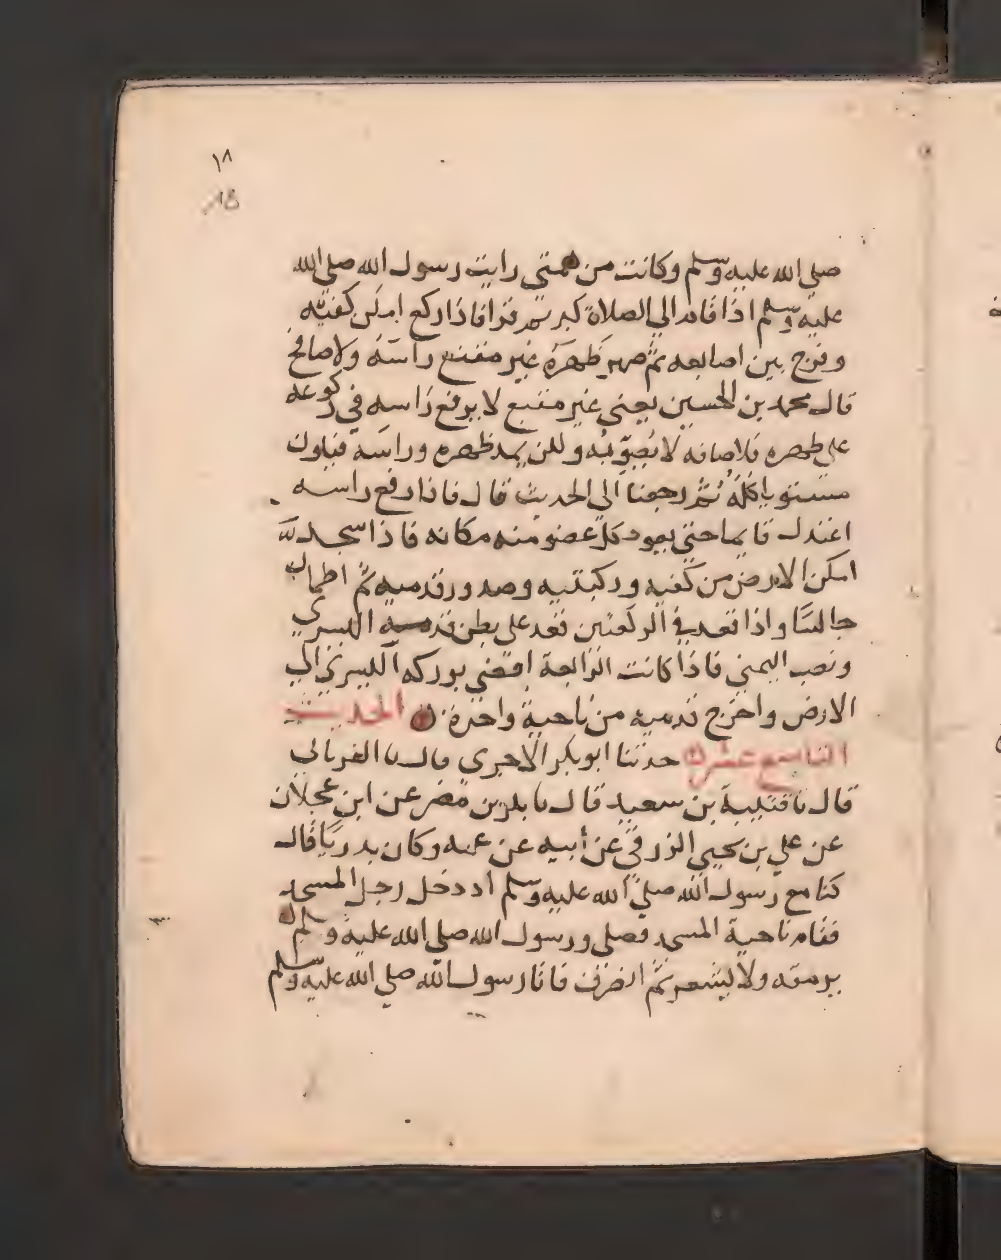 ١٨
18
صلى الله عليه وسلم وكانت من همتي رايت رسول الله صلى الله
عليه وسلم اذا قام الى الصلاة كبر ثم قرا فاذا ركع امكن كفيه
وفرج بين اصابعه ثم هصر ظهره غير مقنع راسه ولا صافح
قال محمد بن الحسين يعني غير مقنع لا يرفع راسه في ركوعه
على ظهره ولا صافه لا يصوبه ولكن يمد ظهره وراسه فيكون
مستويا كله ثم رجعنا الى الحديث قال فاذا رفع راسه
اعتدل قايما حتى يعود كل عضو منه مكانه فاذا سجد
امكن الارض من كفيه وركبتيه وصدور قدميه ثم اطمان
جالسا واذا قعد في الركعتين قعد على بطن قدمه اليسرى
ونصب اليمنى فاذا كانت الرابعة افضى بوركه اليسرى الى
الارض واخرج قدميه من ناحية واحدة الحديث
التاسع عشر حدثنا ابو بكر الاجري قال نا الفريابي
قال نا قتيبة بن سعيد قال نا بكر بن مضر عن ابن عجلان
عن علي بن يحيى الزرقي عن ابيه عن عمه وكان بدريا قال
كنا مع رسول الله صلى الله عليه وسلم اد دخل رجل المسجد
فقام ناحية المسجد فصلى ورسول الله صلى الله عليه وسلم
يرمقه ولا يشعر ثم انصرف فاتا رسول الله صلى الله عليه وسلم